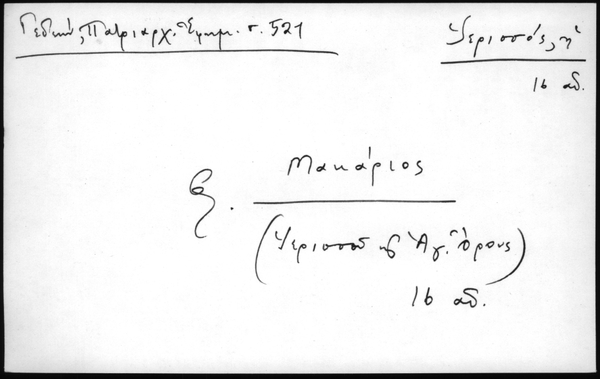 Γεδεών, Πατριαρχ. Ἐφημ. σ. 521
Ἱερισσός, ἡ
16 αἰ.
Ἐ.
Μακάριος
(Ἱερισσοῦ καὶ Ἁγ. Ὄρους)
16 αἰ.